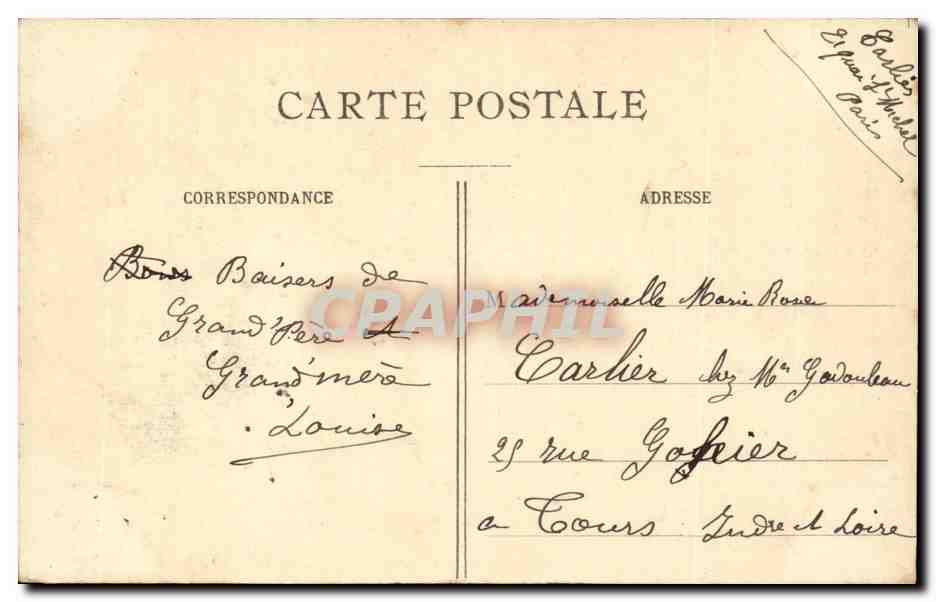 Carlier
21 quai St Michel
Paris
CARTE POSTALE
CORRESPONDANCE
Bons Baisers de
Grand'Père et
Grand'mère
Louise
ADRESSE
Mademoiselle Marie Rose
Carlier chez Mr Godoubeau
25 rue
a Tours Indre et Loire
CPAPHIL